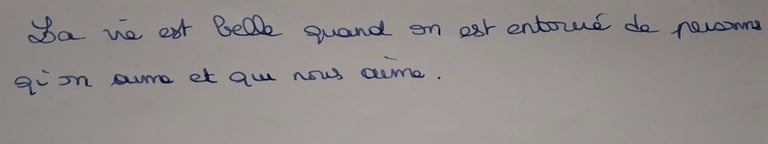 La vie est belle quand on est entouré de personne
qu'on aime et que nous aime.